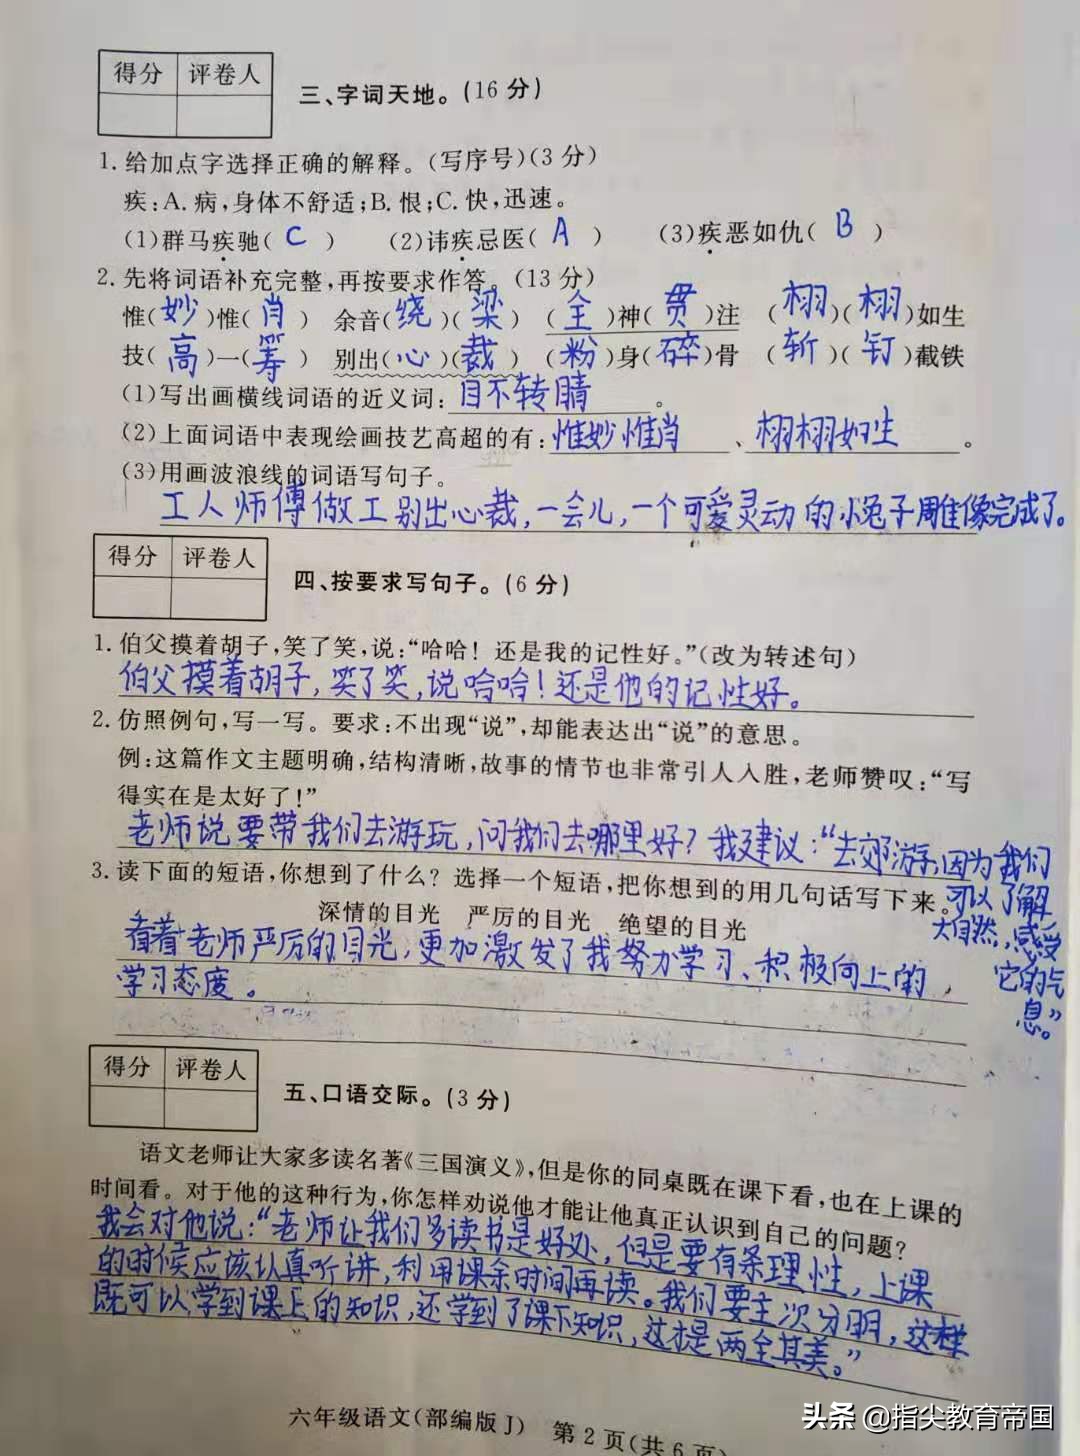 得分 评卷人
三、字词天地。(16分)
1.给加点字选择正确的解释。(写序号)(3分)
疾:A.病,身体不舒适;B.恨;C.快,迅速。
(1)群马疾驰( C ) (2)讳疾忌医( A ) (3)疾恶如仇( B )
2.先将词语补充完整,再按要求作答。(13分)
惟(妙)惟(肖) 余音(绕)(梁) (全)神(贯)注 (栩)(栩)如生
技(高)一(筹) 别出(心)(裁) (粉)身(碎)骨 (斩)(钉)截铁
(1)写出画横线词语的近义词:目不转睛。
(2)上面词语中表现绘画技艺高超的有:惟妙惟肖、栩栩如生。
(3)用画波浪线的词语写句子。
工人师傅做工别出心裁,一会儿,一个可爱灵动的小兔子雕像完成了。
得分 评卷人
四、按要求写句子。(6分)
1.伯父摸着胡子,笑了笑,说:“哈哈!还是我的记性好。”(改为转述句)
伯父摸着胡子,笑了笑,说哈哈!还是他的记性好。
2.仿照例句,写一写。要求:不出现“说”,却能表达出“说”的意思。
例:这篇作文主题明确,结构清晰,故事的情节也非常引人入胜,老师赞叹:“写
得实在是太好了!”
老师说要带我们去游玩,问我们去哪里好?我建议:“去郊游,因为我们
可以了解
大自然,感受
它的气
息。”
3.读下面的短语,你想到了什么?选择一个短语,把你想到的用几句话写下来。
深情的目光 严厉的目光 绝望的目光
看着老师严厉的目光,更加激发了我努力学习、积极向上的
学习态度。
得分 评卷人
五、口语交际。(3分)
语文老师让大家多读名著《三国演义》,但是你的同桌既在课下看,也在上课的
时间看。对于他的这种行为,你怎样劝说他才能让他真正认识到自己的问题?
我会对他说:“老师让我们多读书是好处,但是要有条理性,上课
的时候应该认真听讲,利用课余时间再读。我们要主次分明,这样
既可以学到课上的知识,还学到了课下知识,这才是两全其美。”
六年级语文(部编版J) 第2页(共6页)
头条 @指尖教育帝国